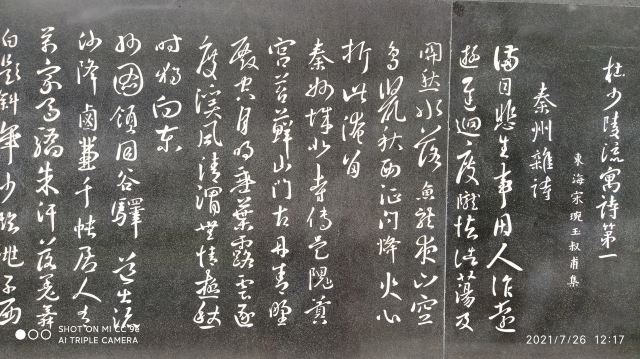 杜少陵流寓詩第一
東海宋琬玉叔甫集
秦州雜詩
滿目悲生事因人作遠
遊遲迴度隴怯浩蕩及
關愁水落魚龍夜山空
鳥鼠秋西征問烽火心
折此淹留
秦州城北寺傳是隗囂
宮苔蘚山門古丹青野
殿空月明垂葉露雲逐
度溪風清渭無情極愁
時獨向東
州圖領同谷驛道出流
沙降鹵兼千帳居人有
萬家馬驕朱汗落舞
白題斜年少臨洮子西
SHOT ON MI CC 9e
AI TRIPLE CAMERA
2021/7/26 12:17